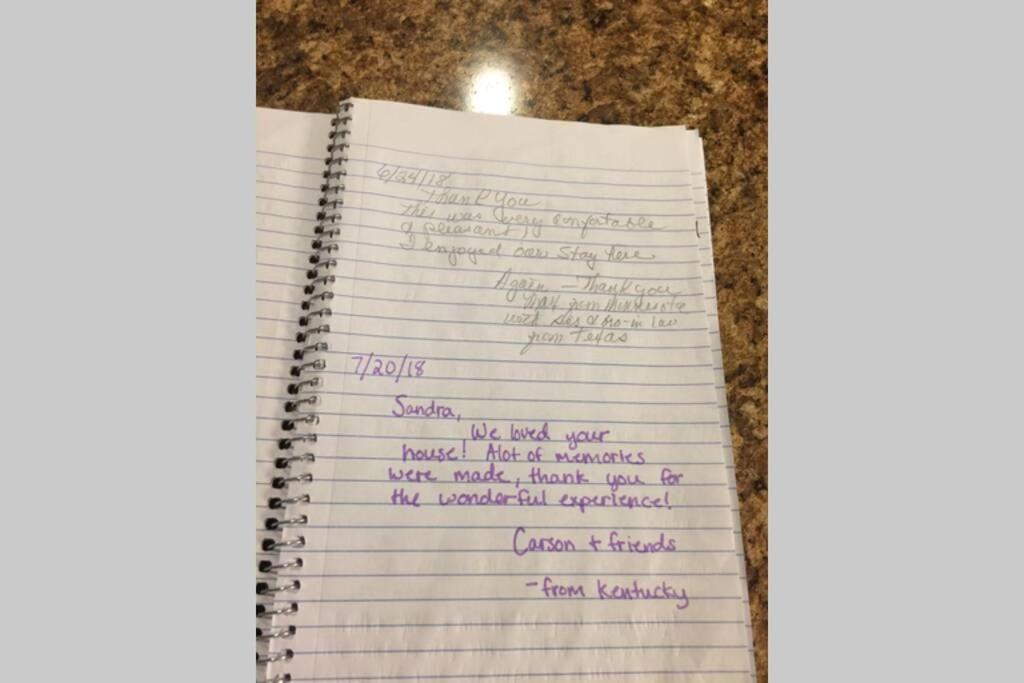 6/24/18
Thank you
This was very comfortable
& pleasant,
I enjoyed our stay here
Again — Thank you
from Minnesota
with Sis & bro-in law
from Texas
7/20/18
Sandra,
We loved your
house! Alot of memories
were made, thank you for
the wonderful experience!
Carson + friends
- from Kentucky